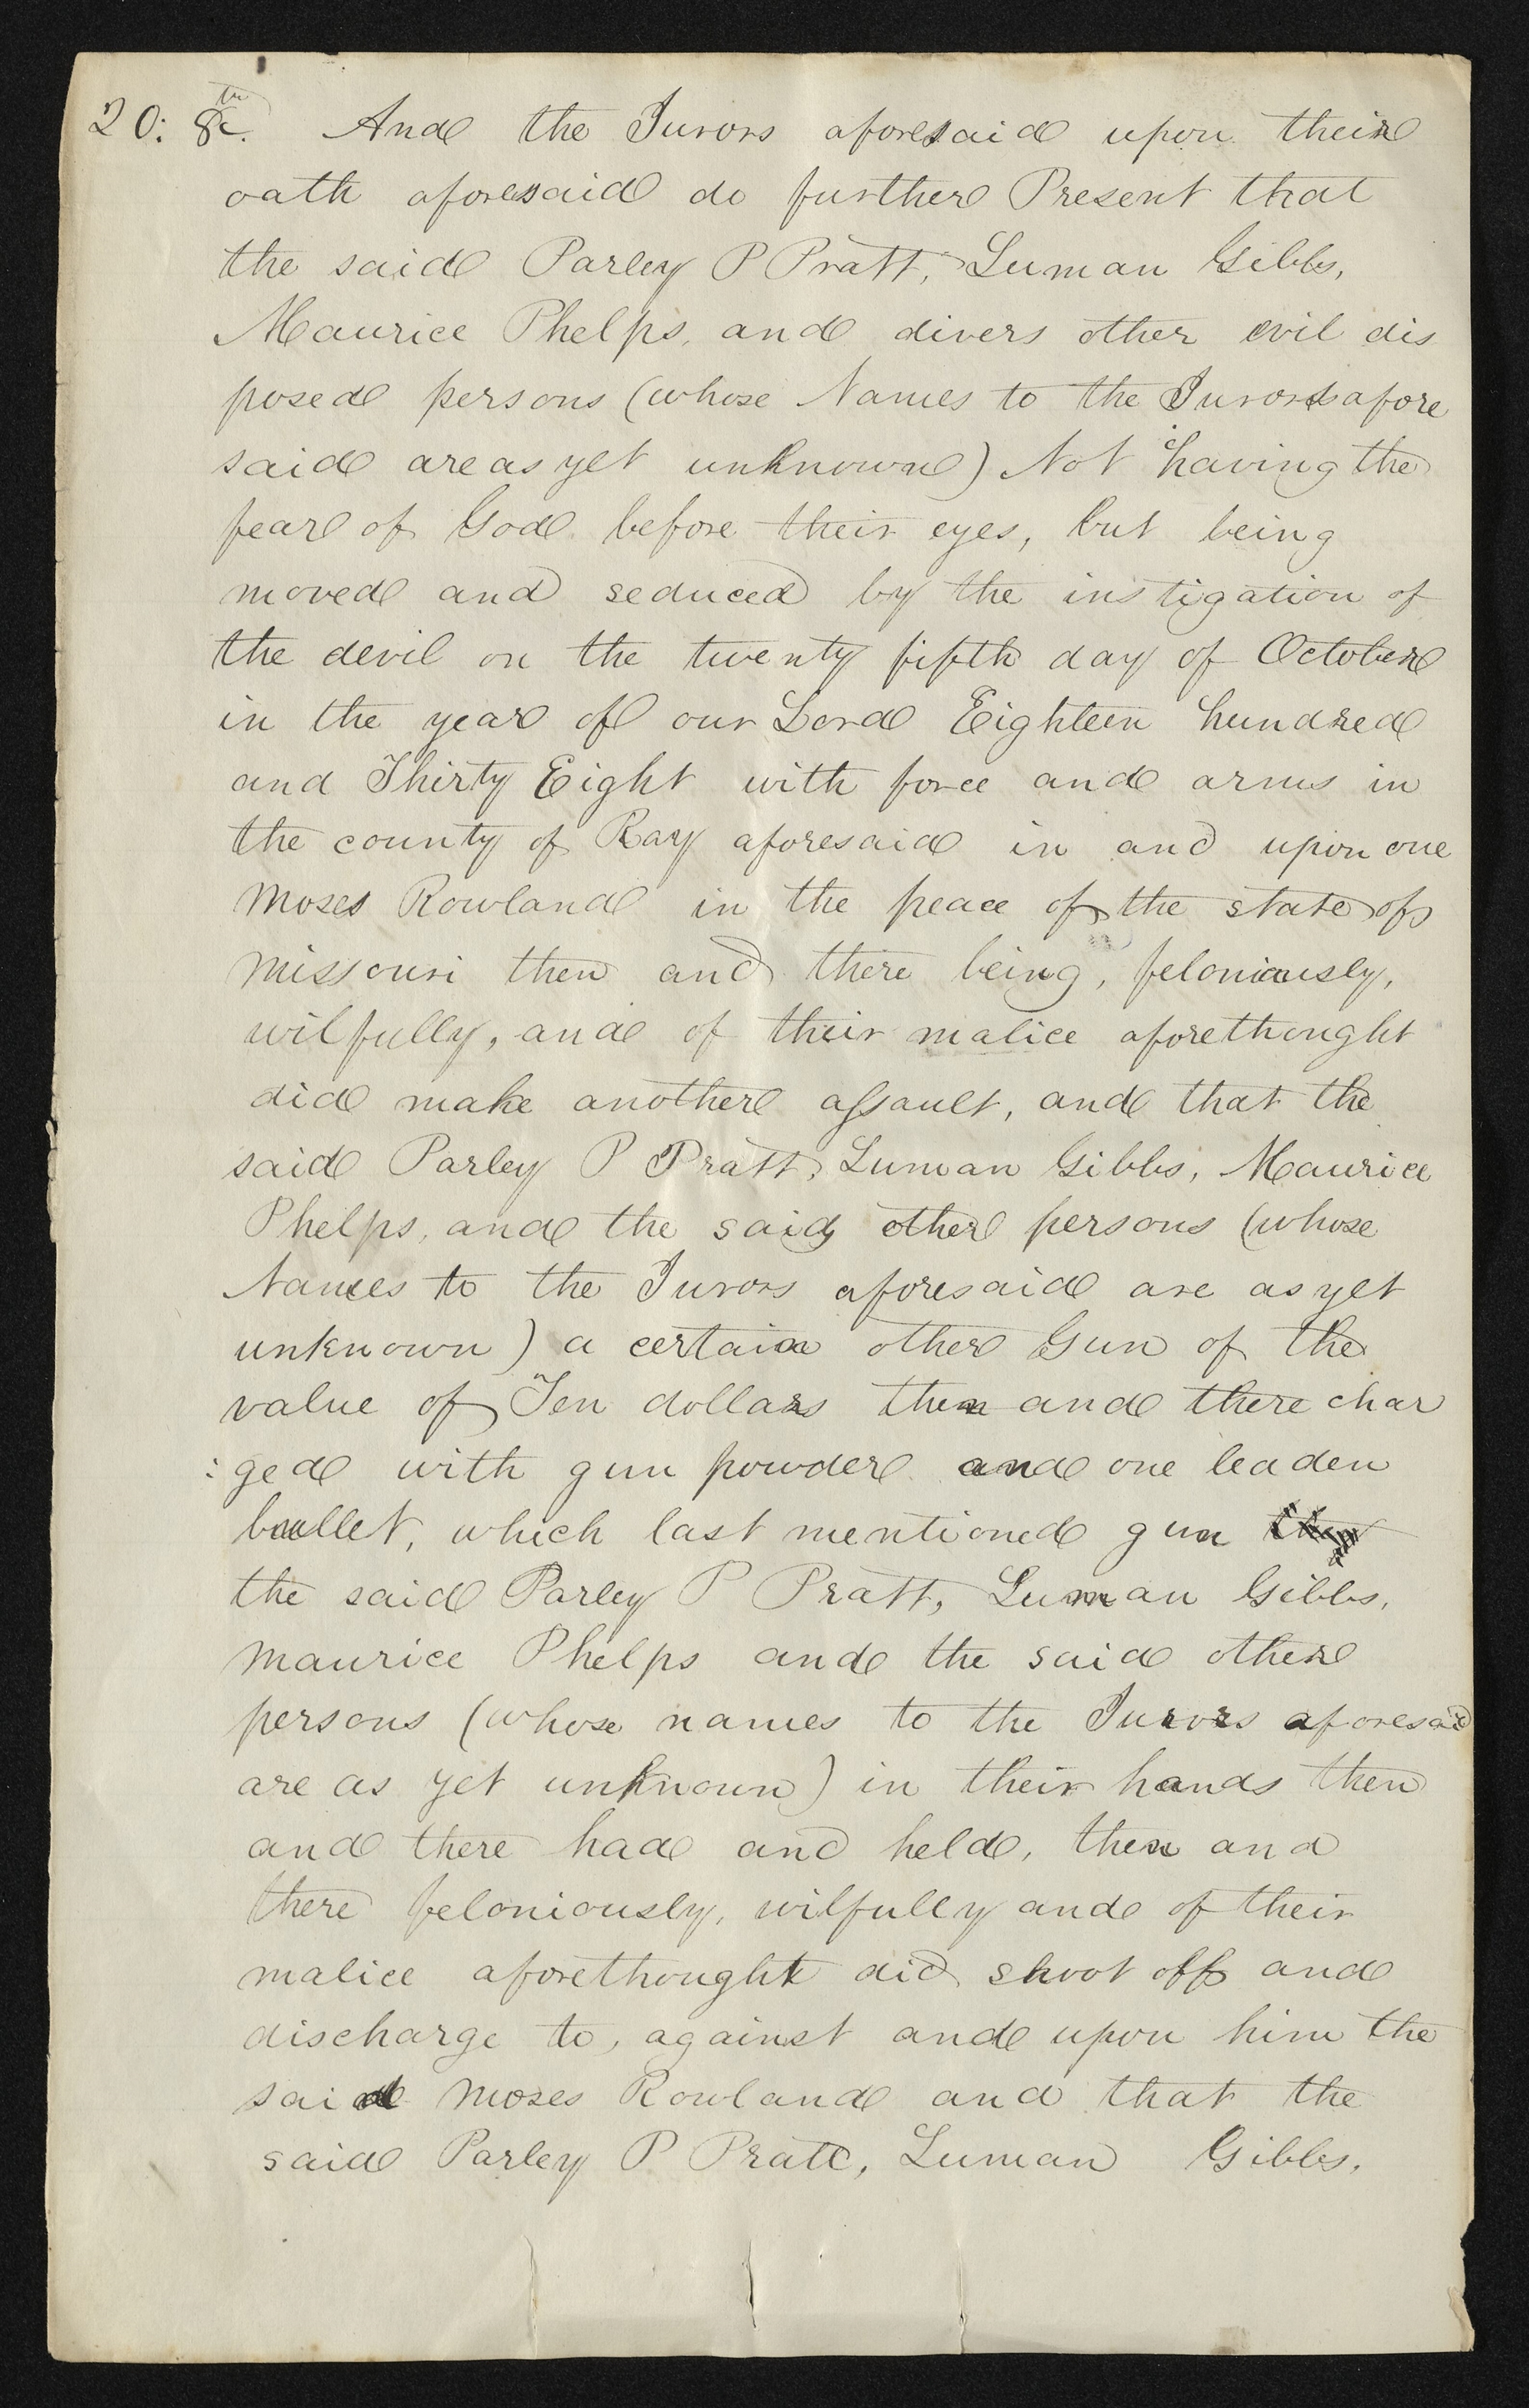 20: 8th. And the Jurors aforesaid upon their
oath aforesaid do further Present that
the said Parley P Pratt, Luman Gibbs,
Maurice Phelps, and divers other evil dis
posed persons (whose Names to the Jurors afore
said are as yet unknown) Not having the
fear of God before their eyes, but being
moved and seduced by the instigation of
the devil on the twenty fifth day of October
in the year of our Lord Eighteen hundred
and Thirty Eight with force and arms in
the county of Ray aforesaid in and upon one
Moses Rowland in the peace of the state of
Missouri then and there being, feloniously,
wilfully, and of their malice aforethought
did make another assault, and that the
said Parley P Pratt, Luman Gibbs, Maurice
Phelps, and the said other persons (whose
Names to the Jurors aforesaid are as yet
unknown) a certain other Gun of the
value of Ten dollars then and there char
:ged with gun powder and one leaden
bullet, which last mentioned gun
the said Parley P Pratt, Luman Gibbs,
Maurice Phelps and the said other
persons (whose names to the Jurors aforesaid
are as yet unknown) in their hands then
and there had and held, then and
there feloniously, wilfully and of their
malice aforethought did shoot off and
discharge to, against and upon him the
said Moses Rowland and that the
said Parley P Pratt, Luman Gibbs,